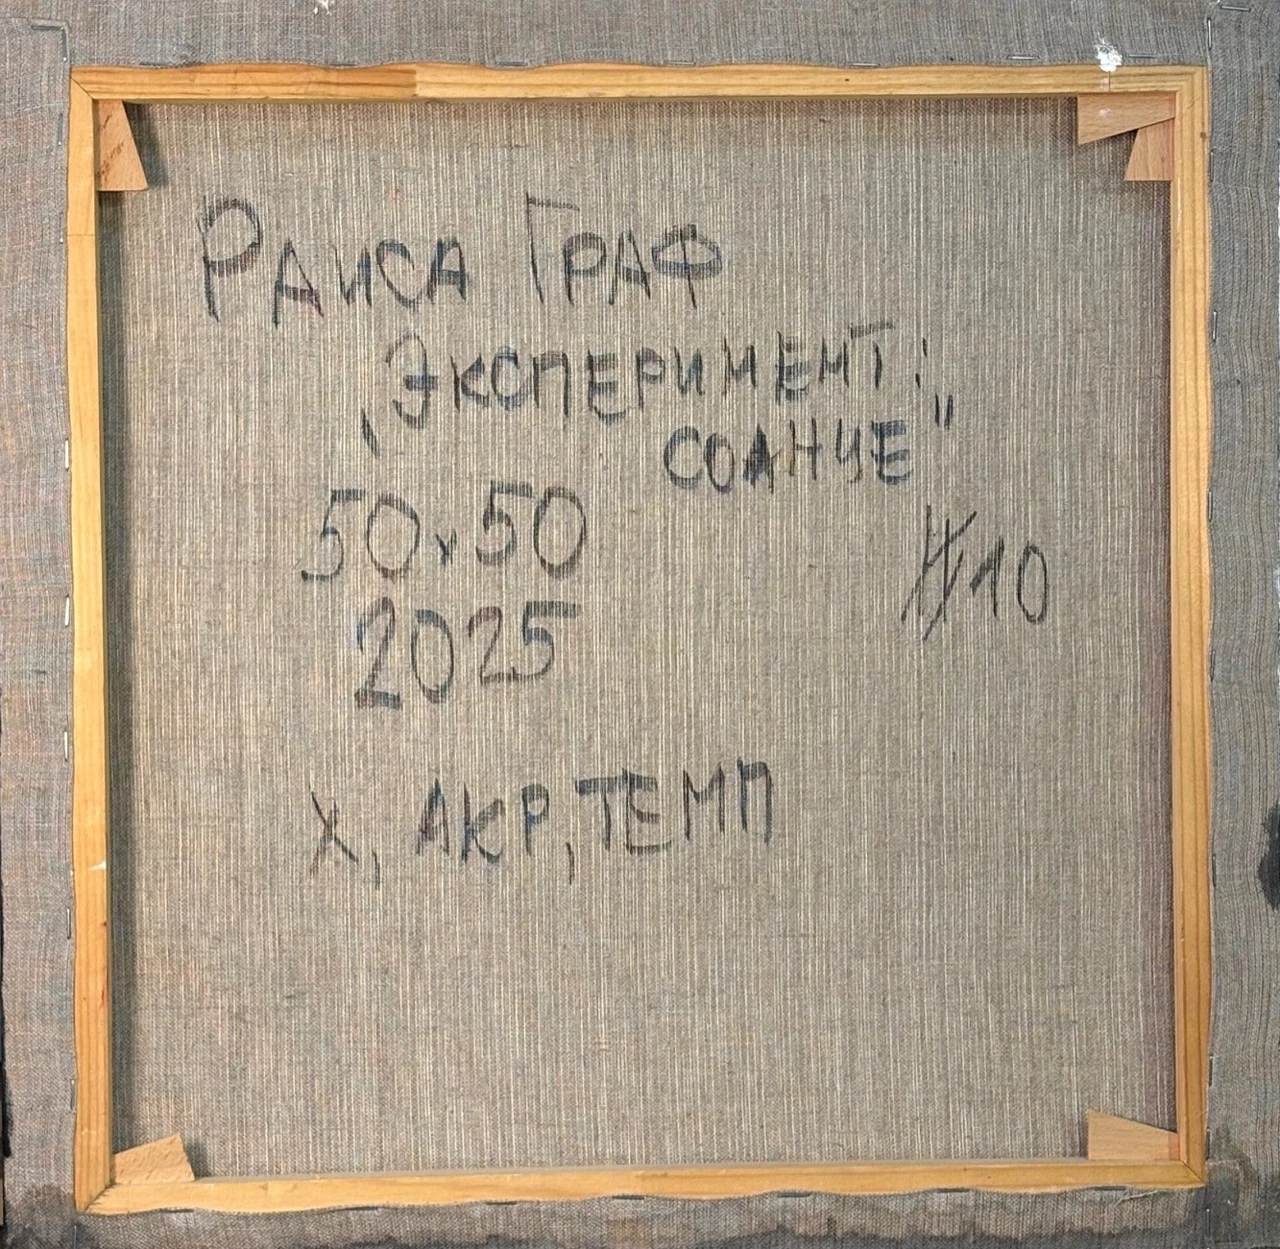 РАИСА ГРАФ
„ЭКСПЕРИМЕНТ:
СОЛНЦЕ"
50х50
#10
2025
Х, АКР, ТЕМП